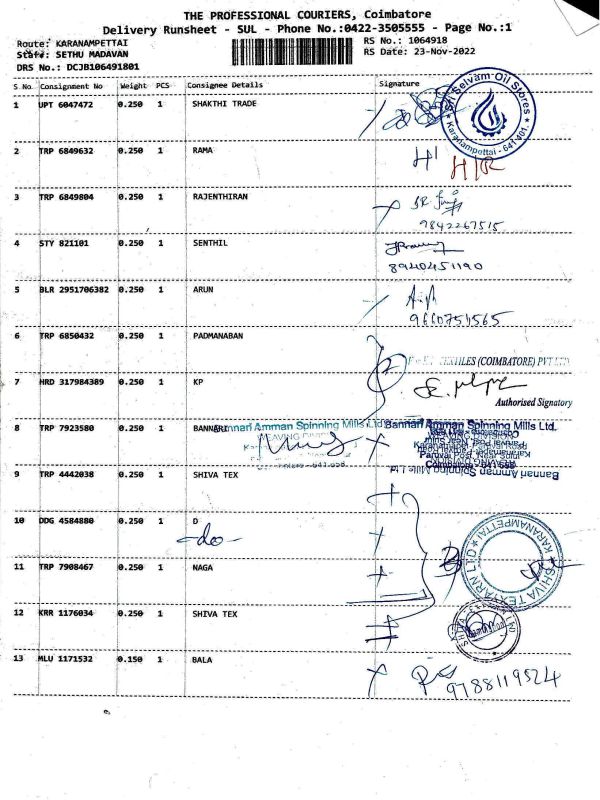 THE PROFESSIONAL COURIERS, Coimbatore
Delivery Runsheet - SUL - Phone No.:0422-3505555 - Page No.:1
Route: KARANAMPETTAI
RS No.: 1064918
Staff: SETHU MADAVAN
RS Date: 23-Nov-2022
DRS No.: DCJB106491801
S No. Consignment No Weight PCS Consignee Details Signature
1 UPT 6047472 0.250 1 SHAKTHI TRADE
Sri Selvam Oil Stores
Karanampettai - 641 401.
2 TRP 6849632 0.250 1 RAMA
H/R
3 TRP 6849804 0.250 1 RAJENTHIRAN
9842267515
4 STY 821101 0.250 1 SENTHIL
8940451190
5 BLR 2951706382 0.250 1 ARUN
9660751565
6 TRP 6850432 0.250 1 PADMANABAN
TEXTILES (COIMBATORE) PVT LTD
7 HRD 317984389 0.250 1 KP
Authorised Signatory
8 TRP 7923580 0.250 1 BANNARI
Bannari Amman Spinning Mills Ltd
Bannari Amman Spinning Mills Ltd.
WEAVING DIVISION
9 TRP 4442038 0.250 1 SHIVA TEX
Bannari Amman Spinning Mills Ltd.
10 DDG 4584880 0.250 1 D
-do-
SHIVA TEXYARN LTD
KARANAMPETTAI
11 TRP 7908467 0.250 1 NAGA
12 KRR 1176034 0.250 1 SHIVA TEX
13 MLU 1171532 0.150 1 BALA
9788119524